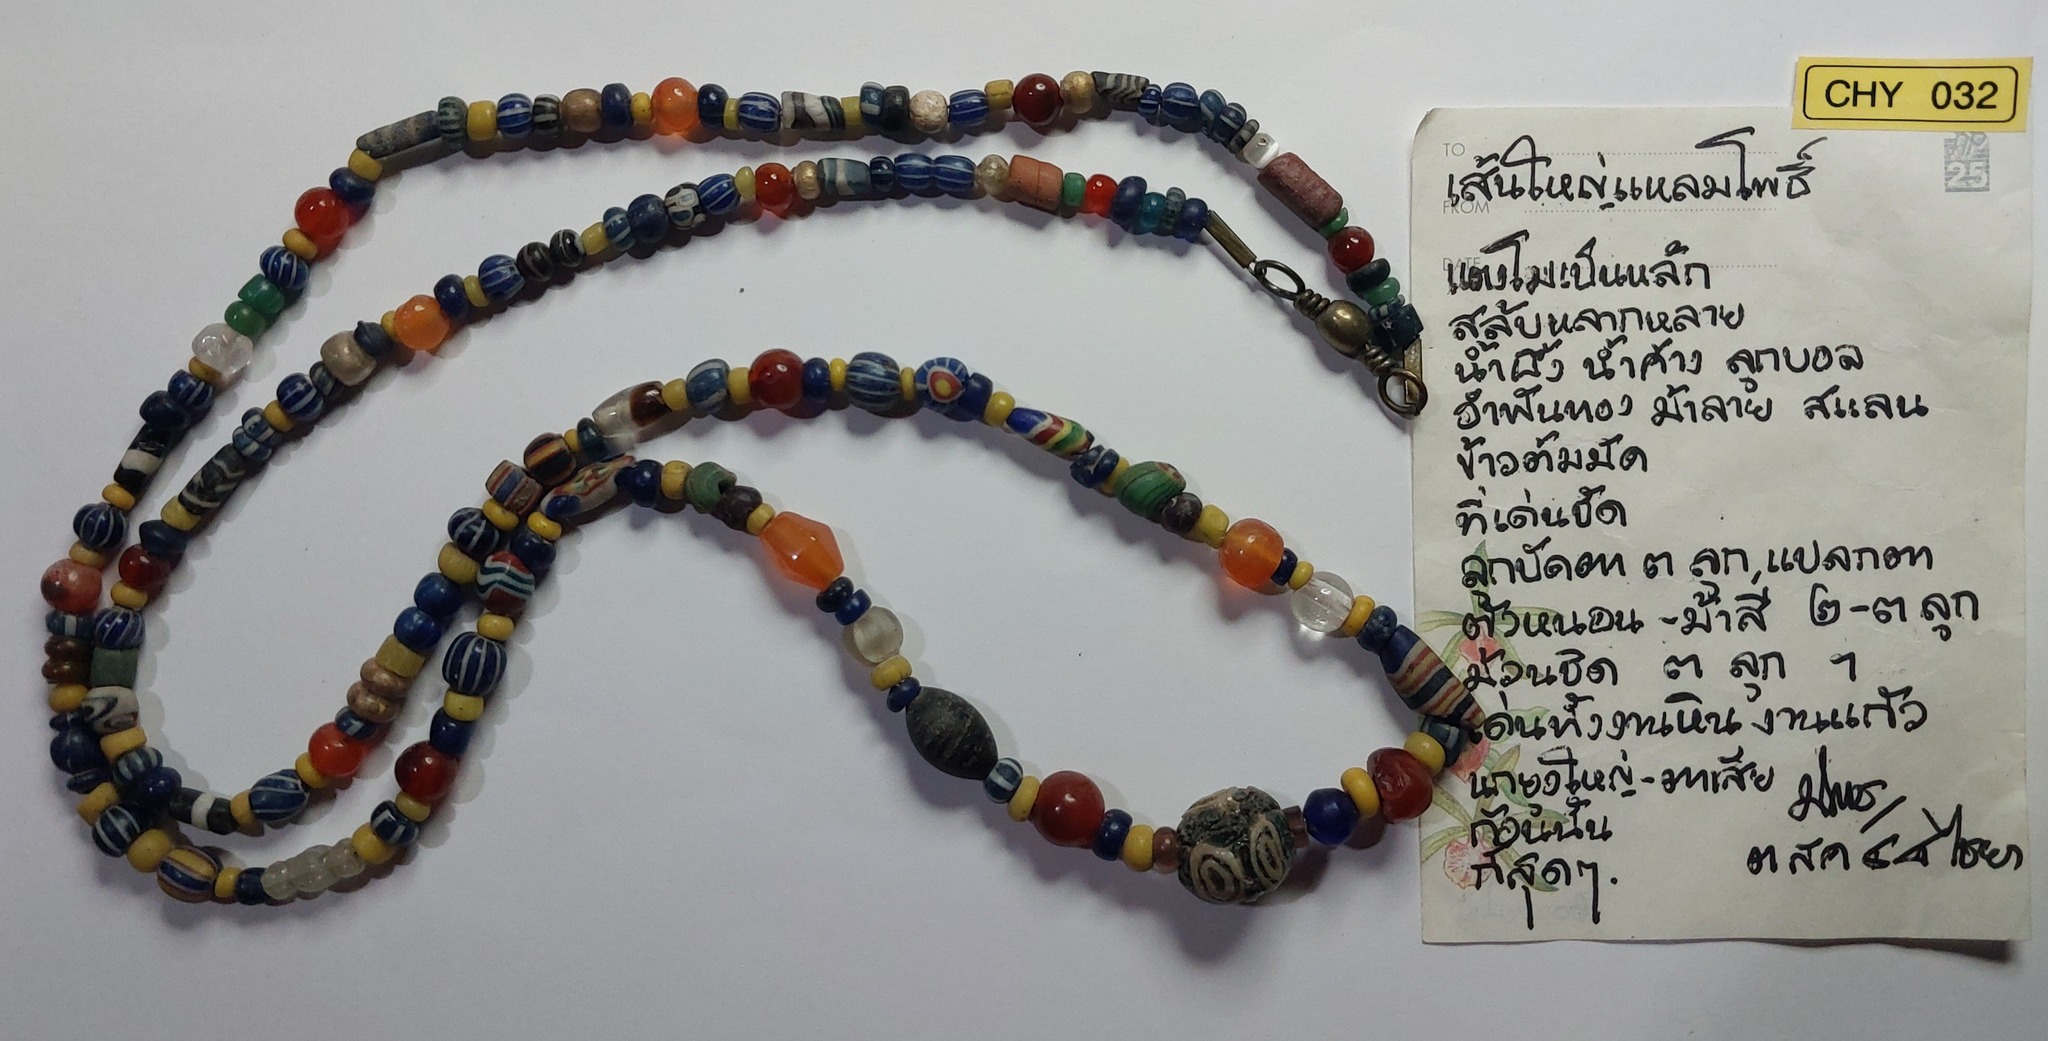 CHY 032
TO
เส้นใหญ่แหลมโพธิ์
FROM
DATE
แตงโมเป็นหลัก
สลับหลากหลาย
น้ำผึ้ง น้ำค้าง ลูกบอล
อำพันทอง ม้าลาย สแลน
ข้าวต้มมัด
ที่เด่นชัด
ลูกปัดตา ๓ ลูก แปลกตา
ตัวหนอน - ม้าสี ๒-๓ ลูก
ม้วนชิด ๓ ลูก ๆ
เด่นทั้งงานหิน งานแก้ว
นายงใหญ่-ตาเสีย
ก้อนนั้น
ที่สุดๆ.
๓ สค ไชยา